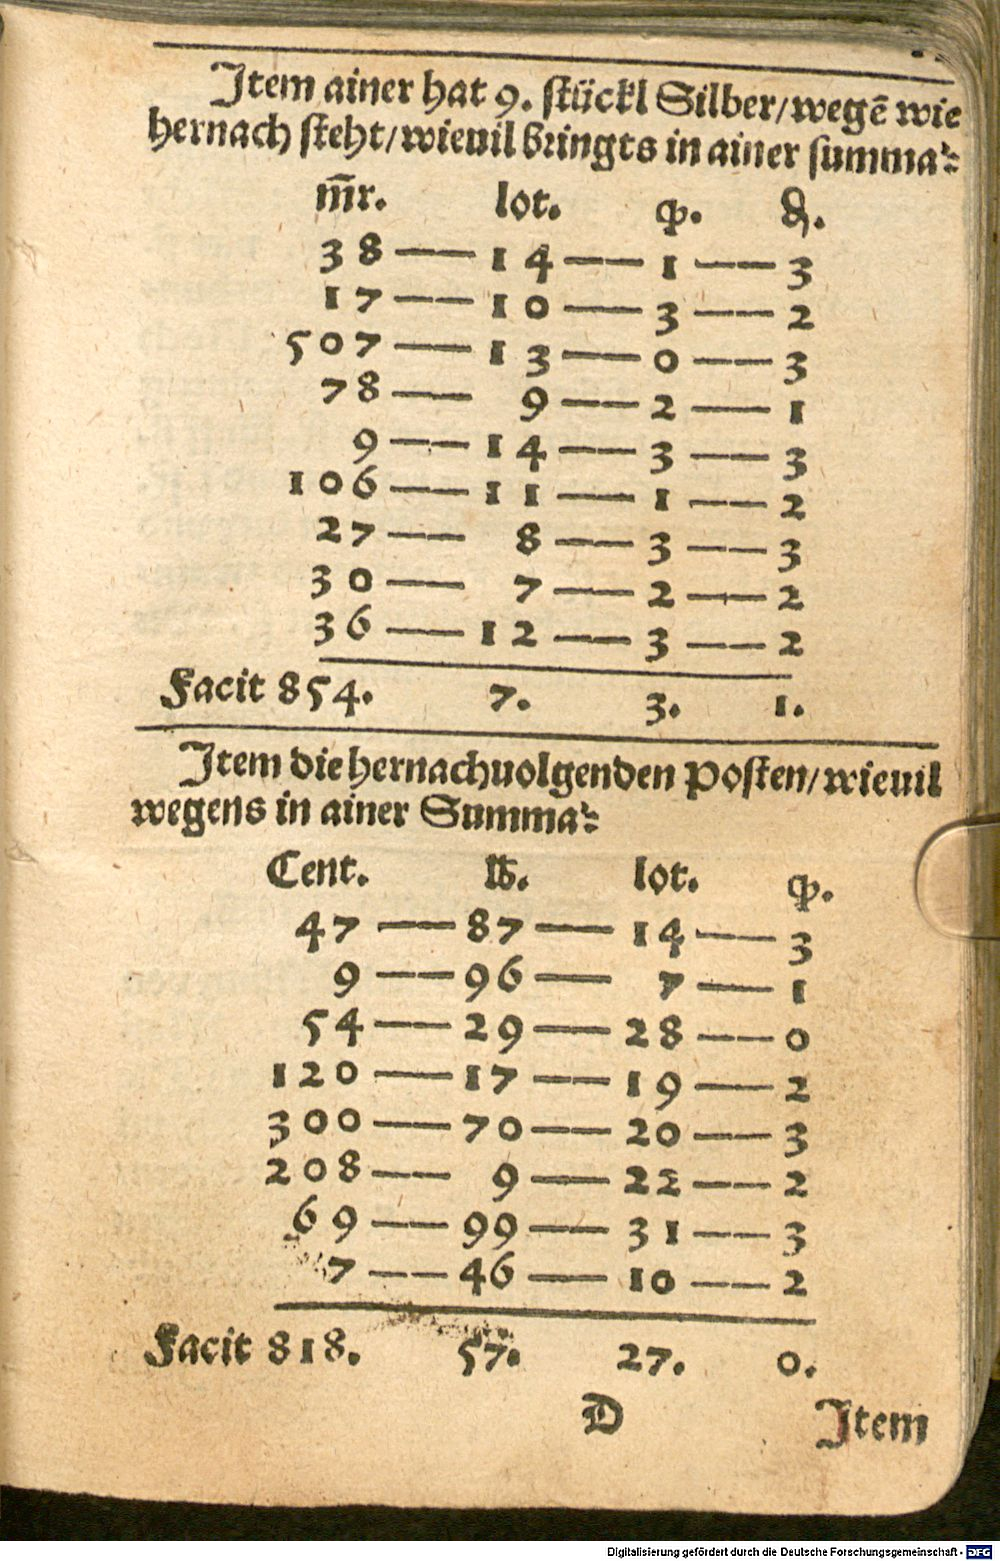 Item ainer hat 9. stückl Silber/wegē wie
hernach steht/wieuil bringts in ainer summa:
m̄r. lot. q̄. ₰.
38 — 14 — 1 — 3
17 — 10 — 3 — 2
507 — 13 — 0 — 3
78 — 9 — 2 — 1
9 — 14 — 3 — 3
106 — 11 — 1 — 2
27 — 8 — 3 — 3
30 — 7 — 2 — 2
36 — 12 — 3 — 2
Facit 854. 7. 3. 1.
Item die hernachuolgenden Posten/wieuil
wegens in ainer Summa:
Cent. ℔. lot. q̄.
47 — 87 — 14 — 3
9 — 96 — 7 — 1
54 — 29 — 28 — 0
120 — 17 — 19 — 2
300 — 70 — 20 — 3
208 — 9 — 22 — 2
69 — 99 — 31 — 3
7 — 46 — 10 — 2
Facit 818. 57. 27. 0.
D Item
Digitalisierung gefördert durch die Deutsche Forschungsgemeinschaft - DFG